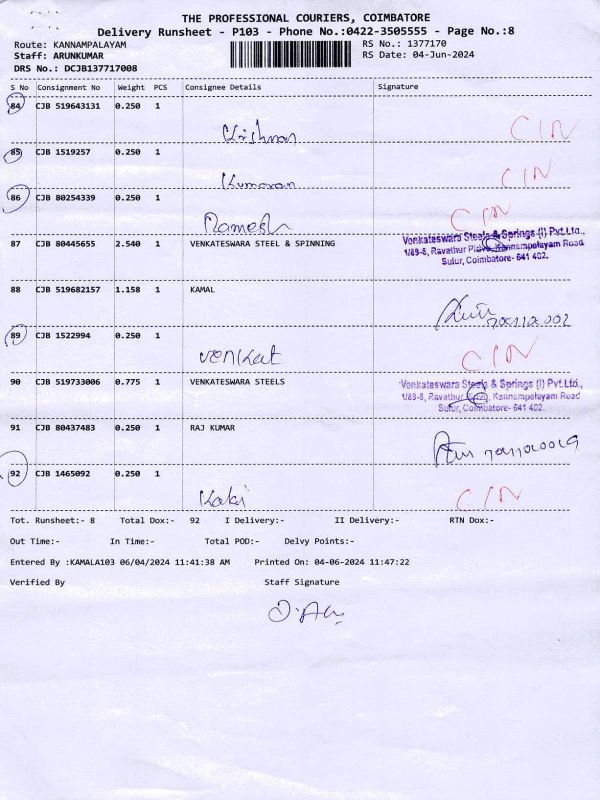 THE PROFESSIONAL COURIERS, COIMBATORE
Delivery Runsheet - P103 - Phone No.:0422-3505555 - Page No.:8
Route: KANNAMPALAYAM RS No.: 1377170
Staff: ARUNKUMAR RS Date: 04-Jun-2024
DRS No.: DCJB137717008
S No Consignment No Weight PCS Consignee Details Signature
84 CJB 519643131 0.250 1
Krishnan CIN
85 CJB 1519257 0.250 1
Kumaran CIN
86 CJB 80254339 0.250 1
Ramesh CIN
87 CJB 80445655 2.540 1 VENKATESWARA STEEL & SPINNING Venkateswara Steels & Springs (I) Pvt.Ltd.,
1/89-6, Ravathur Pirivu, Kannampalayam Road
Sulur, Coimbatore- 641 402.
88 CJB 519682157 1.158 1 KAMAL
89 CJB 1522994 0.250 1
Venkat CIN
90 CJB 519733006 0.775 1 VENKATESWARA STEELS Venkateswara Steels & Springs (I) Pvt.Ltd.,
1/89-6, Ravathur Pirivu, Kannampalayam Road
Sulur, Coimbatore- 641 402.
91 CJB 80437483 0.250 1 RAJ KUMAR
92 CJB 1465092 0.250 1
Kaki CIN
Tot. Runsheet:- 8 Total Dox:- 92 I Delivery:- II Delivery:- RTN Dox:-
Out Time:- In Time:- Total POD:- Delvy Points:-
Entered By :KAMALA103 06/04/2024 11:41:38 AM Printed On: 04-06-2024 11:47:22
Verified By Staff Signature